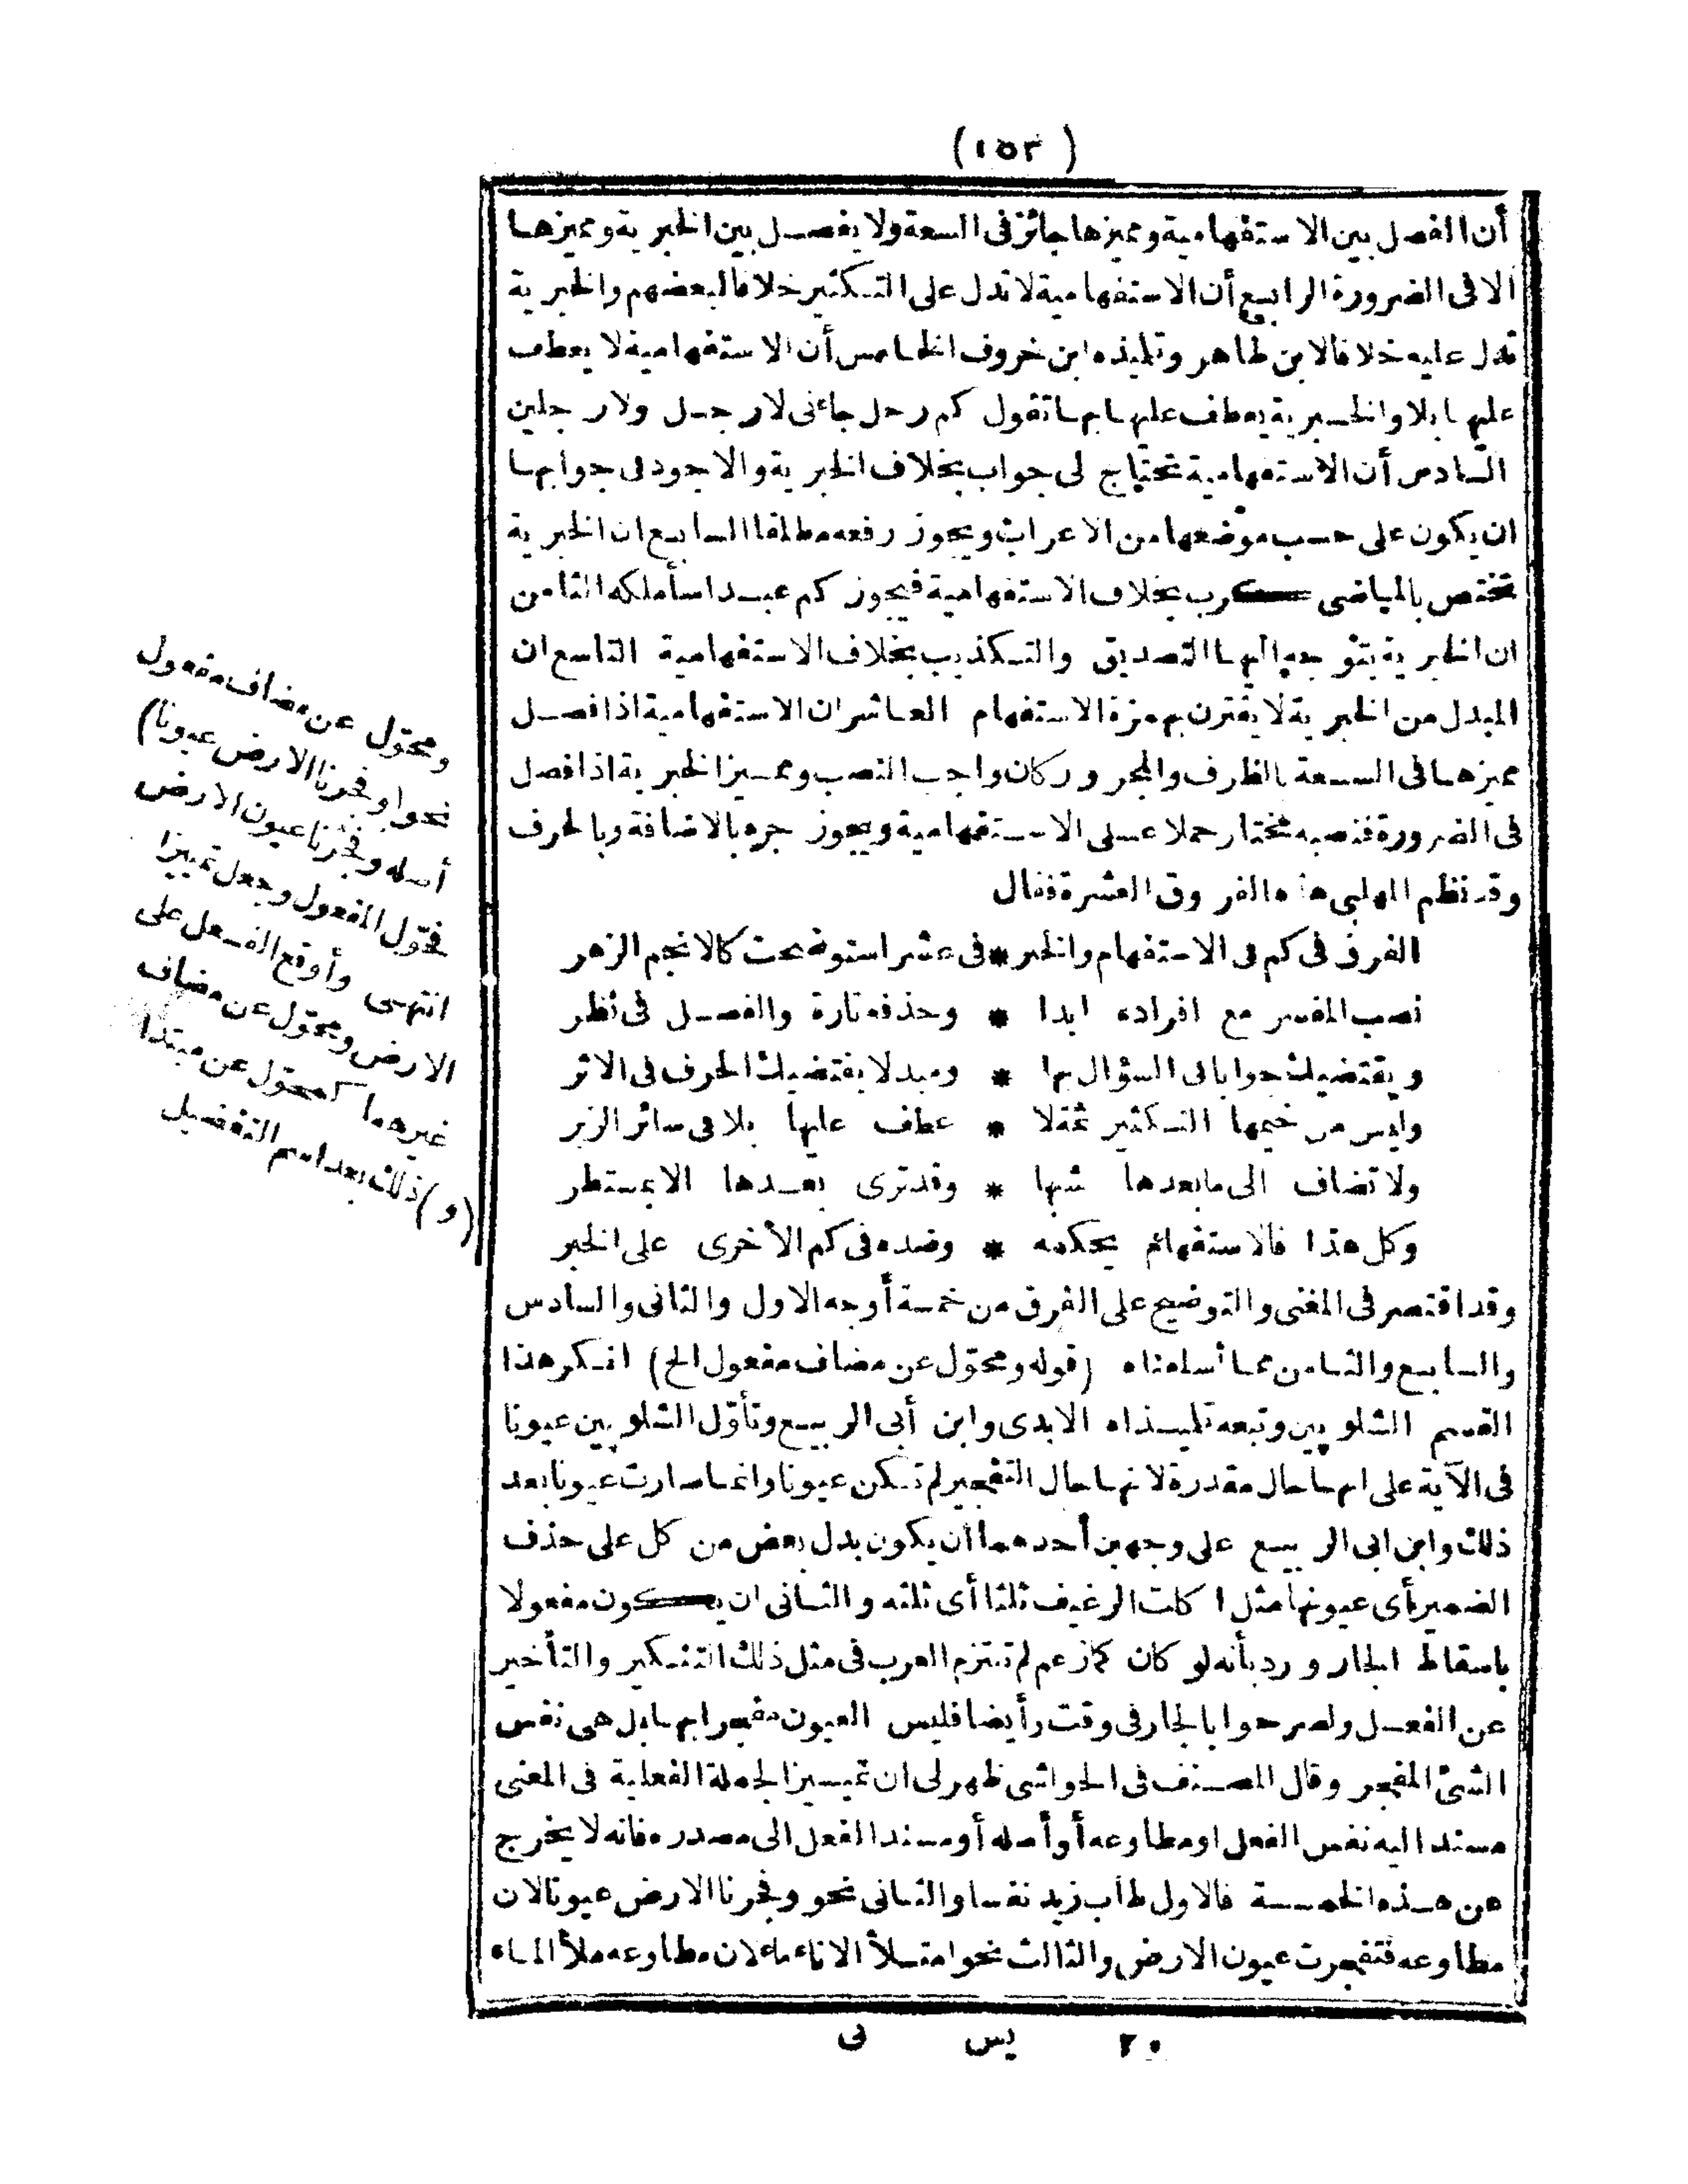 (١٥٣)
أن الفصل بين الاستفهامية ومميزها جائز فى السعة ولا يفصل بين الخبرية ومميزها
الا فى الضرورة الرابع أن الاستفهامية لا تدل على التكثير خلافا لبعضهم والخبرية
تدل عليه خلافا لابن طاهر وتلميذه ابن خروف الخامس أن الاستفهامية لا يعطف
عليها بلا والخبرية يعطف عليها بها تقول كم رجل جاءنى لا رجل ولا رجلين
السادس أن الاستفهامية تحتاج لى جواب بخلاف الخبرية والاجود فى جوابها
ان يكون على حسب موضعها من الاعراب ويجوز رفعه مطلقا السابع ان الخبرية
تختص بالماضى كرب بخلاف الاستفهامية فيجوز كم عبدا سأملكه الثامن
ان الخبرية يتوجه اليها التصديق والتكذيب بخلاف الاستفهامية التاسع ان
المبدل من الخبرية لا يقترن بهمزة الاستفهام العاشر ان الاستفهامية اذا فصل
مميزها فى السعة بالظرف والمجرور كان واجب النصب ومميز الخبرية اذا فصل
فى الضرورة فنصبه مختار حملا على الاستفهامية ويجوز جره بالاضافة وبالحرف
وقد نظم المهلبى هذه الفروق العشرة فقال
الفرق فى كم فى الاستفهام والخبر * فى عشر استوضحت كالانجم الزهر
نصب المفسر مع افراده ابدا * وحذفه تارة والفصل فى نظر
ويقتضيك جوابا فى السؤال بها * ومبدلا يقتضيك الحرف فى الاثر
وليس من خيمها التكثير ثم لا * عطف عليها بلا فى سائر الزبر
ولا تضاف الى ما بعدها شبها * وقد ترى بعدها الا بمستطر
وكل هذا فالاستفهام يحكمه * وضده فى كم الأخرى على الخبر
وقد اقتصر فى المغنى والتوضيح على الفرق من خمسة أوجه الاول والثانى والسادس
والسابع والثامن مما أسلفناه (قوله ومحوّل عن مضاف مفعول الخ) انكر هذا
القسم الشلوبين وتبعه تلميذاه الابدى وابن أبى الربيع وتأوّل الشلوبين عيونا
فى الآية على انها حال مقدرة لانها حال التفجير لم تكن عيونا وانما صارت عيونا بعد
ذلك وابن ابى الربيع على وجهين أحدهما أن يكون بدل بعض من كل على حذف
الضمير أى عيونها مثل اكلت الرغيف ثلثا أى ثلثه والثانى ان يكون مفعولا
باسقاط الجار ورد بأنه لو كان كما زعم لم تلتزم العرب فى مثل ذلك التنكير والتأخير
عن الفعل ولصرحوا بالجار فى وقت وأيضا فليس العيون مفجرا بها بل هى نفس
الشئ المفجر وقال المصنف فى الحواشى ظهر لى ان تمييز الجملة الفعلية فى المعنى
مسند اليه نفس الفعل او مطاوعه أو أصله أو مسند الفعل الى مصدره فانه لا يخرج
عن هذه الخمسة فالاول طاب زيد نفسا والثانى نحو وفجرنا الارض عيونا لان
مطاوعه فتفجرت عيون الارض والثالث نحو امتلأ الاناء ماء لان مطاوعه ملأ الماء
٢٠ يس نى
ومحوّل عن مضاف مفعول
نحو (وفجرنا الارض عيونا)
أصله وفجرنا عيون الارض
فحوّل المفعول وجعل تمييزا
انتهى وأوقع الفعل على
الارض ومحوّل عن مضاف
غيرهما كمحوّل عن مبتدا
(و) ذلك بعد اسم التفضيل